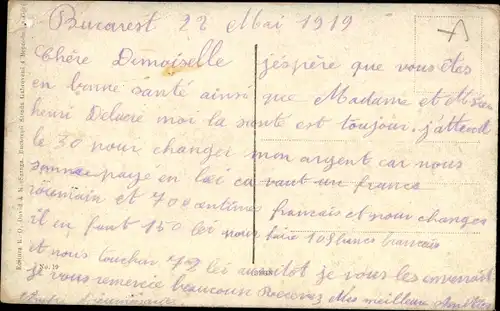 Bucarest 22 Mai 1919
Chère Dimoiselle j'éspère que vous êtes
en bonne santé ainsi que Madame et
henri moi la santé est toujour. j'attend
le 30 pour changer mon argent car nous
somme payé en lei ca vaut un franc
roumain et 700 centimes francais et pour changer
il en faut 150 lei pour faire 105 francs francais
et nous touchon 72 lei aussitôt je vous les enverrait
je vous remercie beaucoup Recevez Mes meilleure Amitiés
No. 19